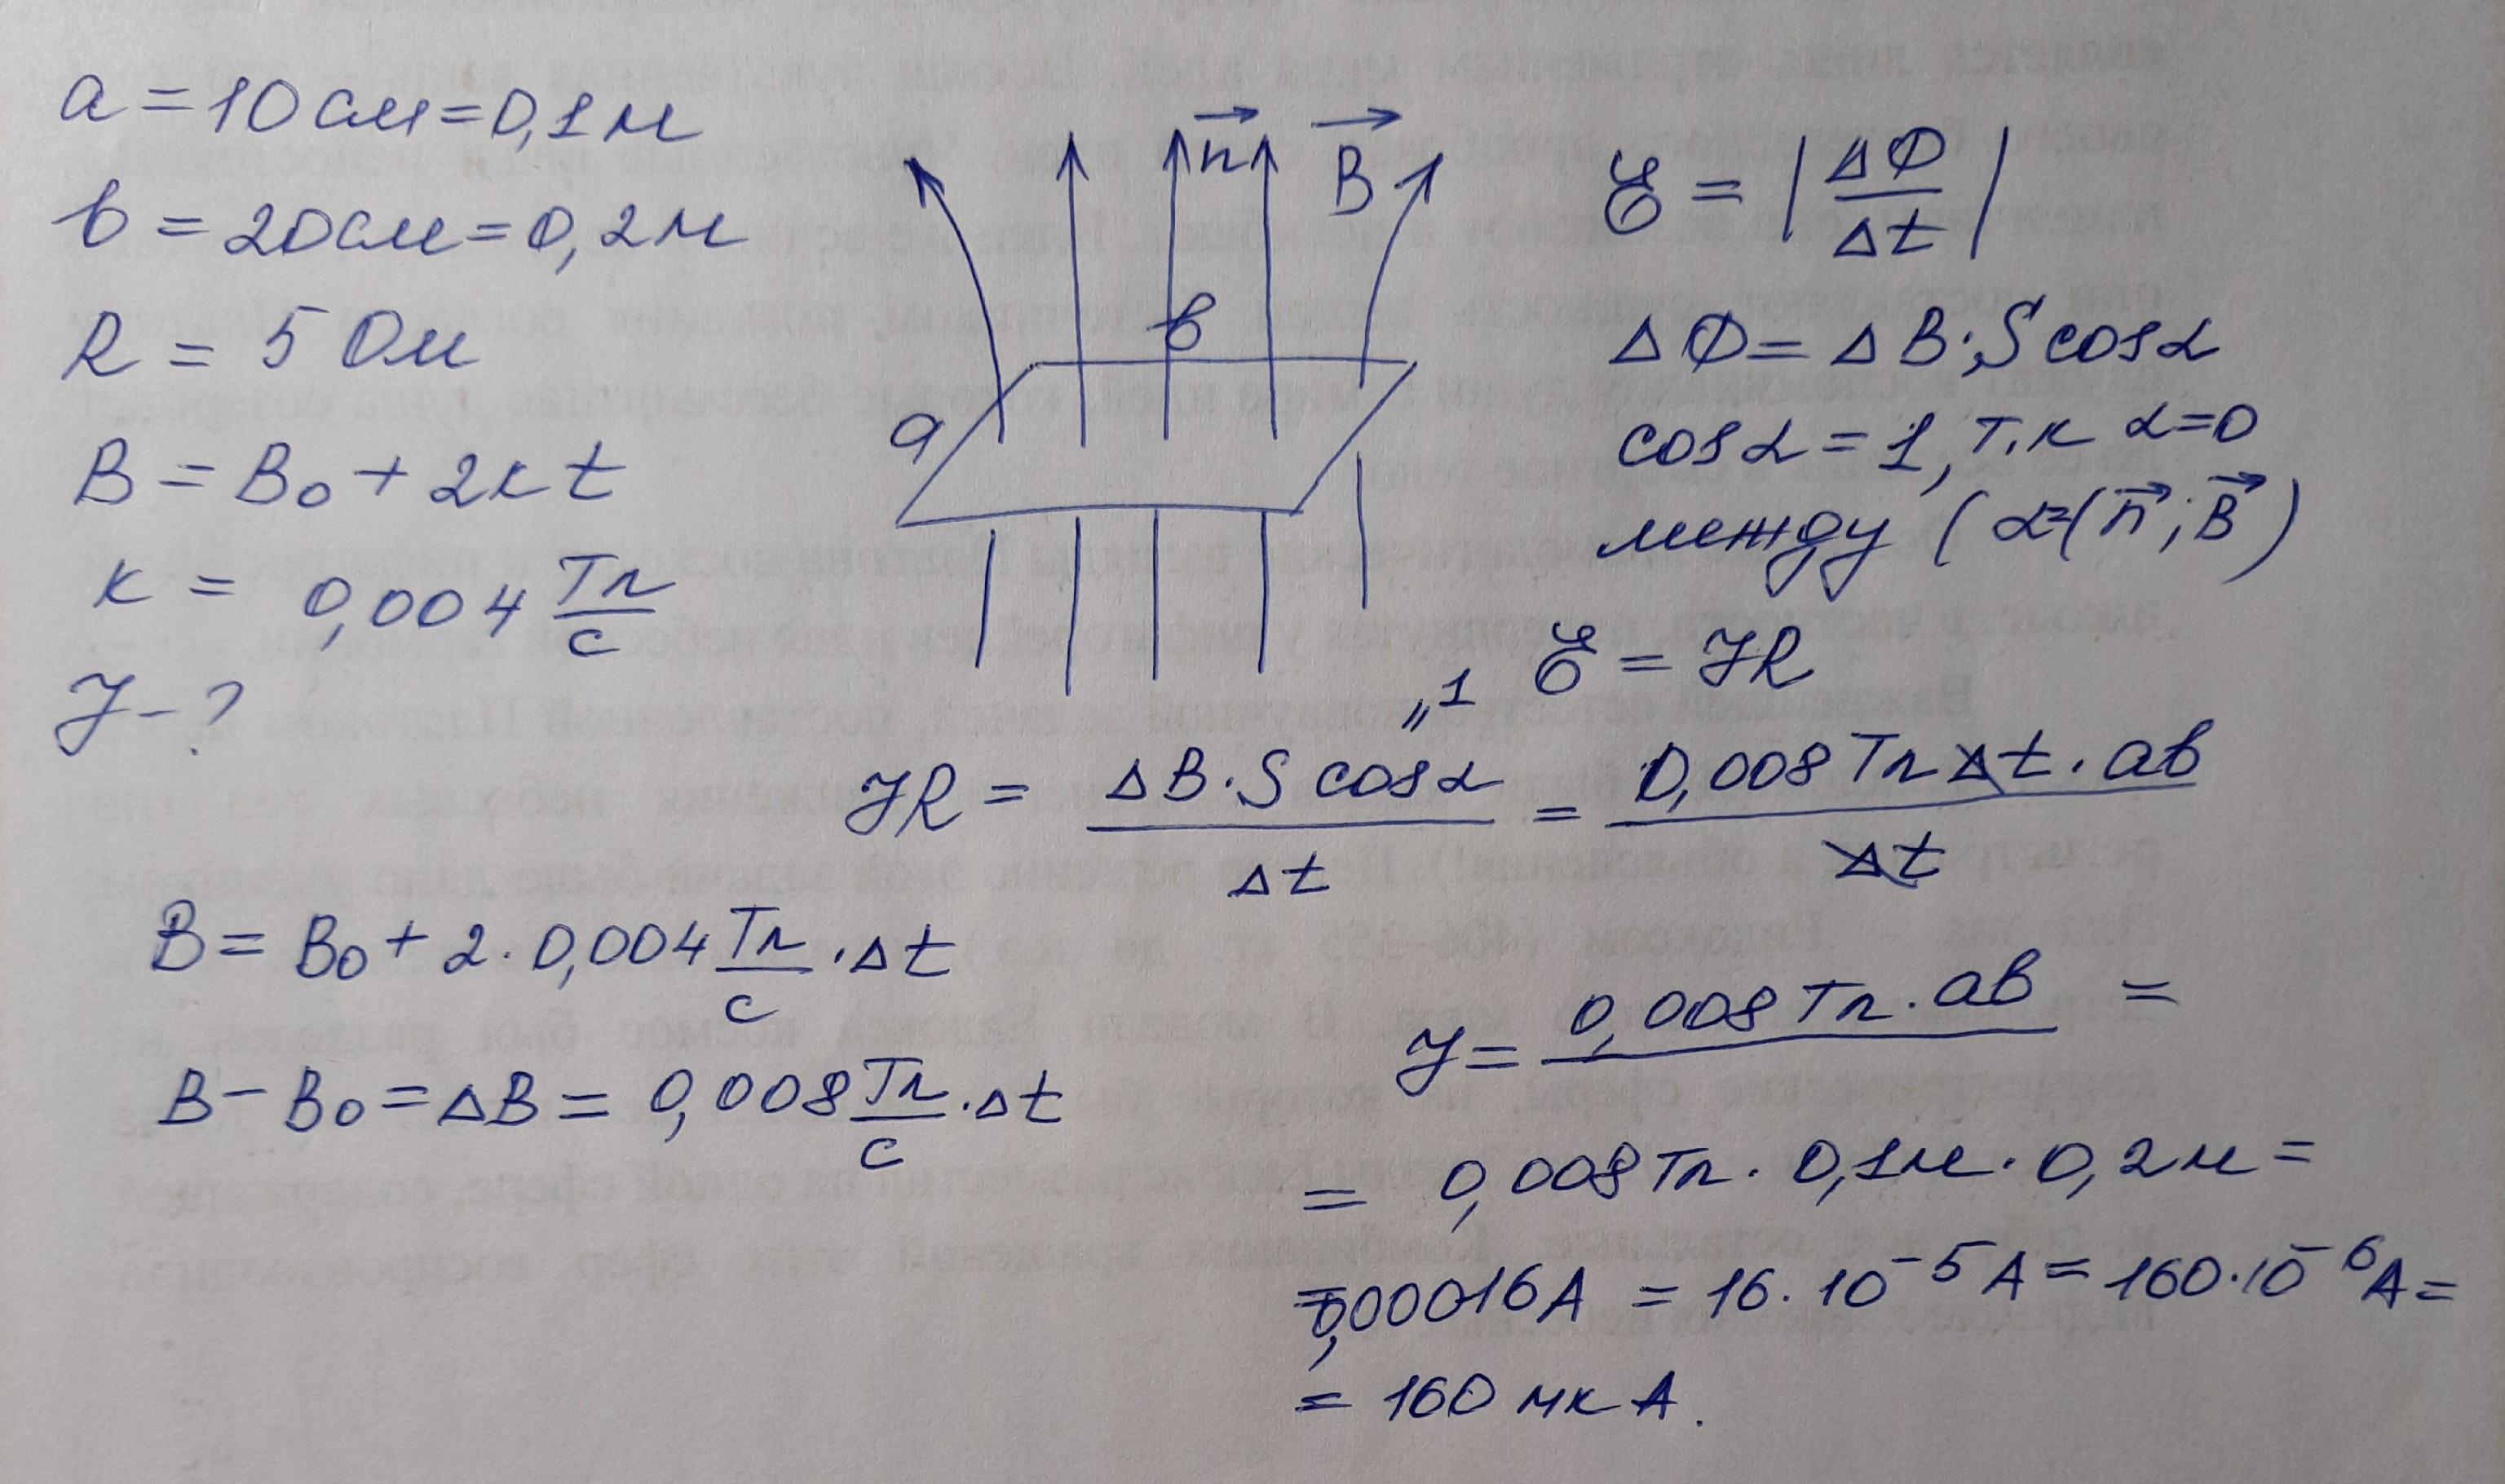 a = 10 см = 0,1 м
b = 20 см = 0,2 м
R = 5 Ом
B = B₀ + 2кt
к = 0,004 Тл/с
J - ?
n⃗ B⃗
b
a
ℰ = |ΔФ/Δt|
ΔФ = ΔB·S cosα
cosα = 1, т.к α=0
между (α=(n⃗; B⃗)
ℰ = JR
"1
JR = ΔB·S cosα/Δt = 0,008 Тл Δt·ab/Δt
B = B₀ + 2·0,004 Тл/с ·Δt
B - B₀ = ΔB = 0,008 Тл/с ·Δt
J = 0,008 Тл·ab =
= 0,008 Тл·0,1м·0,2м =
= 0,00016 А = 16·10⁻⁵ А = 160·10⁻⁶ А =
= 160 мк А.